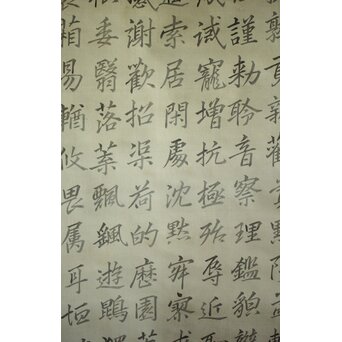 熟貢新勸賞黜陟
謹勅聆音察理鑑貌辨
誡寵増抗極殆辱近
逼索居閑處沈默寂寥求
感謝歡招渠荷的歴園莽
委翳落葉飄颻遊鵾獨
箱易輶攸畏属耳垣